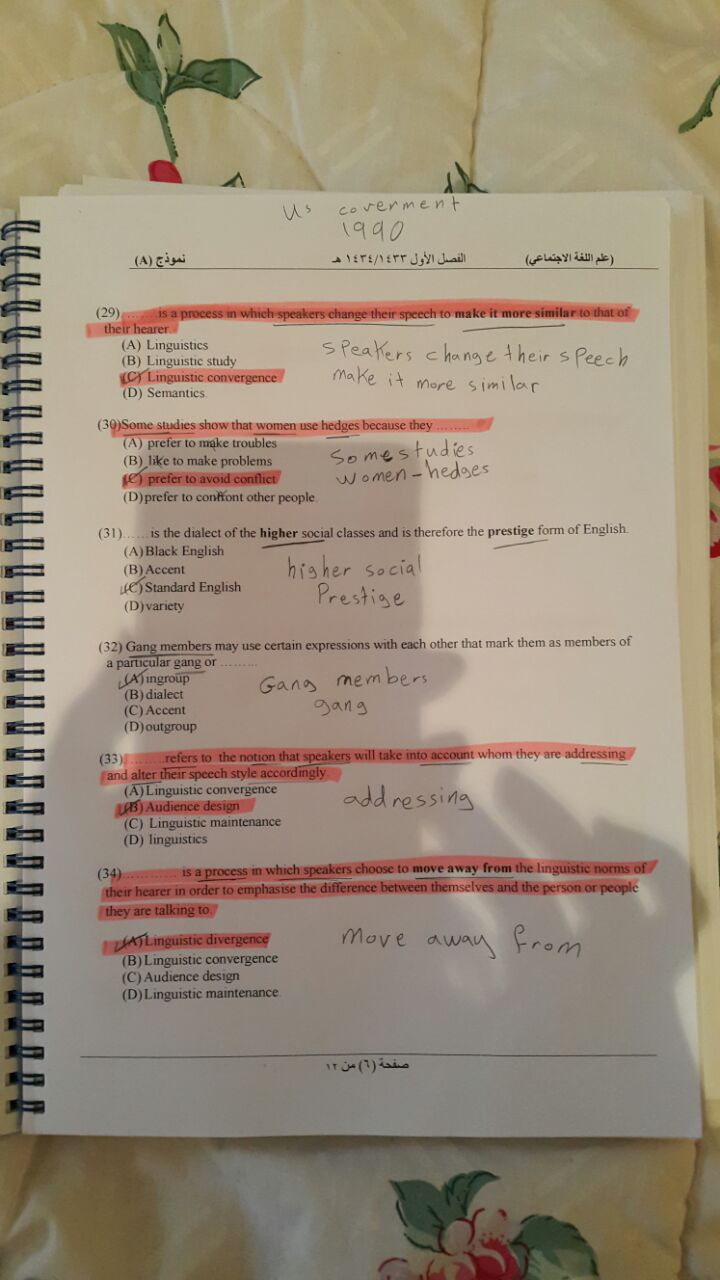 Us coverment
1990
(علم اللغة الاجتماعي) الفصل الأول ١٤٣٤/١٤٣٣ هـ نموذج (A)
(29)........is a process in which speakers change their speech to make it more similar to that of
their hearer.
(A) Linguistics
(B) Linguistic study
(C) Linguistic convergence
(D) Semantics.
speakers change their speech
make it more similar
(30)Some studies show that women use hedges because they ........
(A) prefer to make troubles
(B) like to make problems
(C) prefer to avoid conflict
(D) prefer to confront other people.
Some studies
women-hedges
(31)......is the dialect of the higher social classes and is therefore the prestige form of English.
(A) Black English
(B) Accent
(C) Standard English
(D) variety
higher social
Prestige
(32) Gang members may use certain expressions with each other that mark them as members of
a particular gang or .........
(A) ingroup
(B) dialect
(C) Accent
(D) outgroup
Gang members
gang
(33).........refers to the notion that speakers will take into account whom they are addressing
and alter their speech style accordingly.
(A) Linguistic convergence
(B) Audience design
(C) Linguistic maintenance
(D) linguistics
addressing
(34)............ is a process in which speakers choose to move away from the linguistic norms of
their hearer in order to emphasise the difference between themselves and the person or people
they are talking to.
(A) Linguistic divergence
(B) Linguistic convergence
(C) Audience design
(D) Linguistic maintenance.
move away from
صفحة (٦) من ١٢